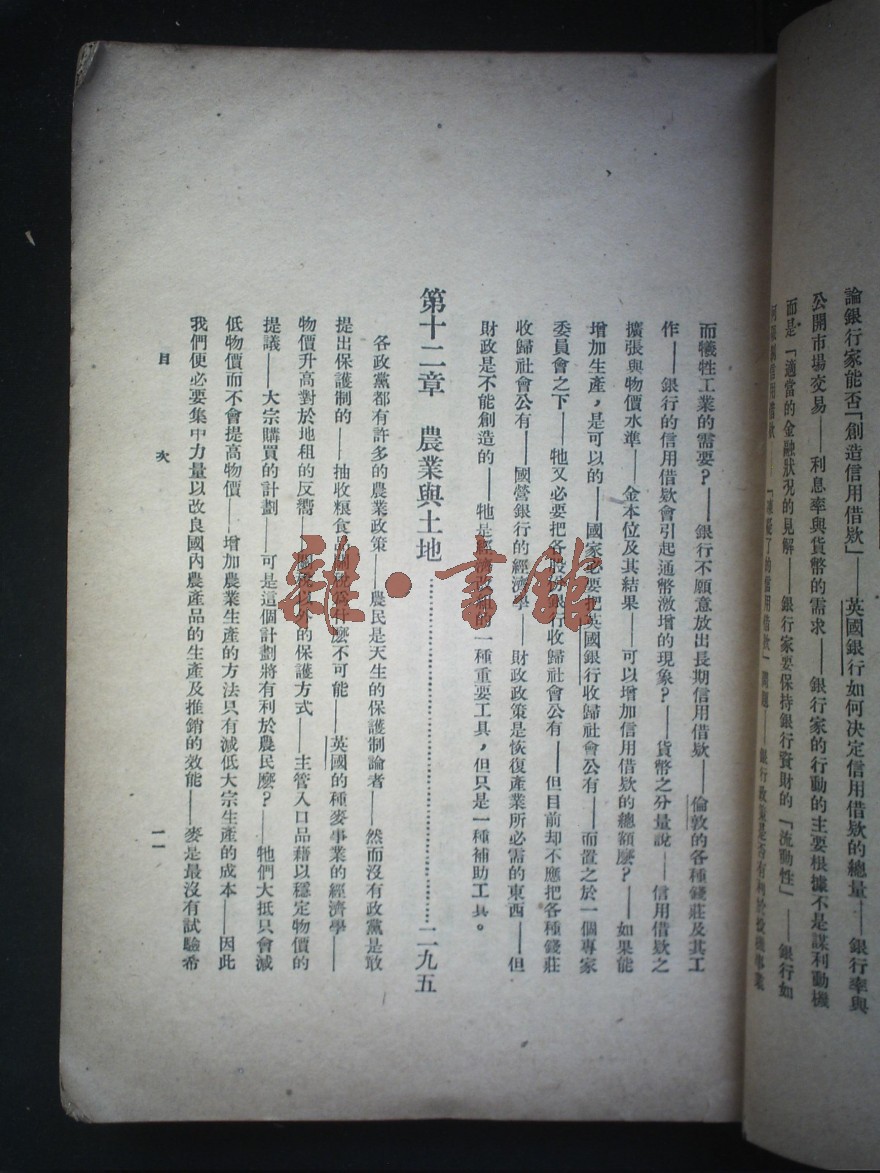 論銀行家能否「創造信用借款」——英國銀行如何决定信用借款的總量——銀行率與
公開市場交易——利息率與貨幣的需求——銀行家的行動的主要根據不是謀利動機
而是「適當的金融狀況的見解——銀行家要保持銀行資財的「流動性」——銀行如
信用借款——「凍凝了的信用借款」問題——銀行政策是否有利於投機事業
而犧牲工業的需要？——銀行不願意放出長期信用借款——倫敦的各種錢莊及其工
作——銀行的信用借款會引起通幣激增的現象？——貨幣之分量說——信用借款之
擴張與物價水準——金本位及其結果——可以增加信用借款的總額麽？——如果能
增加生產，是可以的——國家必要把英國銀行收歸社會公有——而置之於一個專家
委員會之下——牠又必要把各股份銀行收歸社會公有——但目前却不應把各種錢莊
收歸社會公有——國營銀行的經濟學——財政政策是恢復產業所必需的東西——但
財政是不能創造的——牠是經濟改組的一種重要工具，但只是一種補助工具。
第十二章　農業與土地……………………………二九五
各政黨都有許多的農業政策——農民是天生的保護制論者——然而沒有政黨是敢
提出保護制的——抽收粮食品關稅爲什麽不可能——英國的種麥事業的經濟學——
物價升高對於地租的反響——關稅以外的保護方式——主管入口品藉以穩定物價的
提議——大宗購買的計劃——可是這個計劃將有利於農民麽？——牠們大抵只會減
低物價而不會提高物價——增加農業生產的方法只有減低大宗生產的成本——因此
我們便必要集中力量以改良國內農產品的生產及推銷的效能——麥是最沒有試驗希
目次
一一
雜·書館